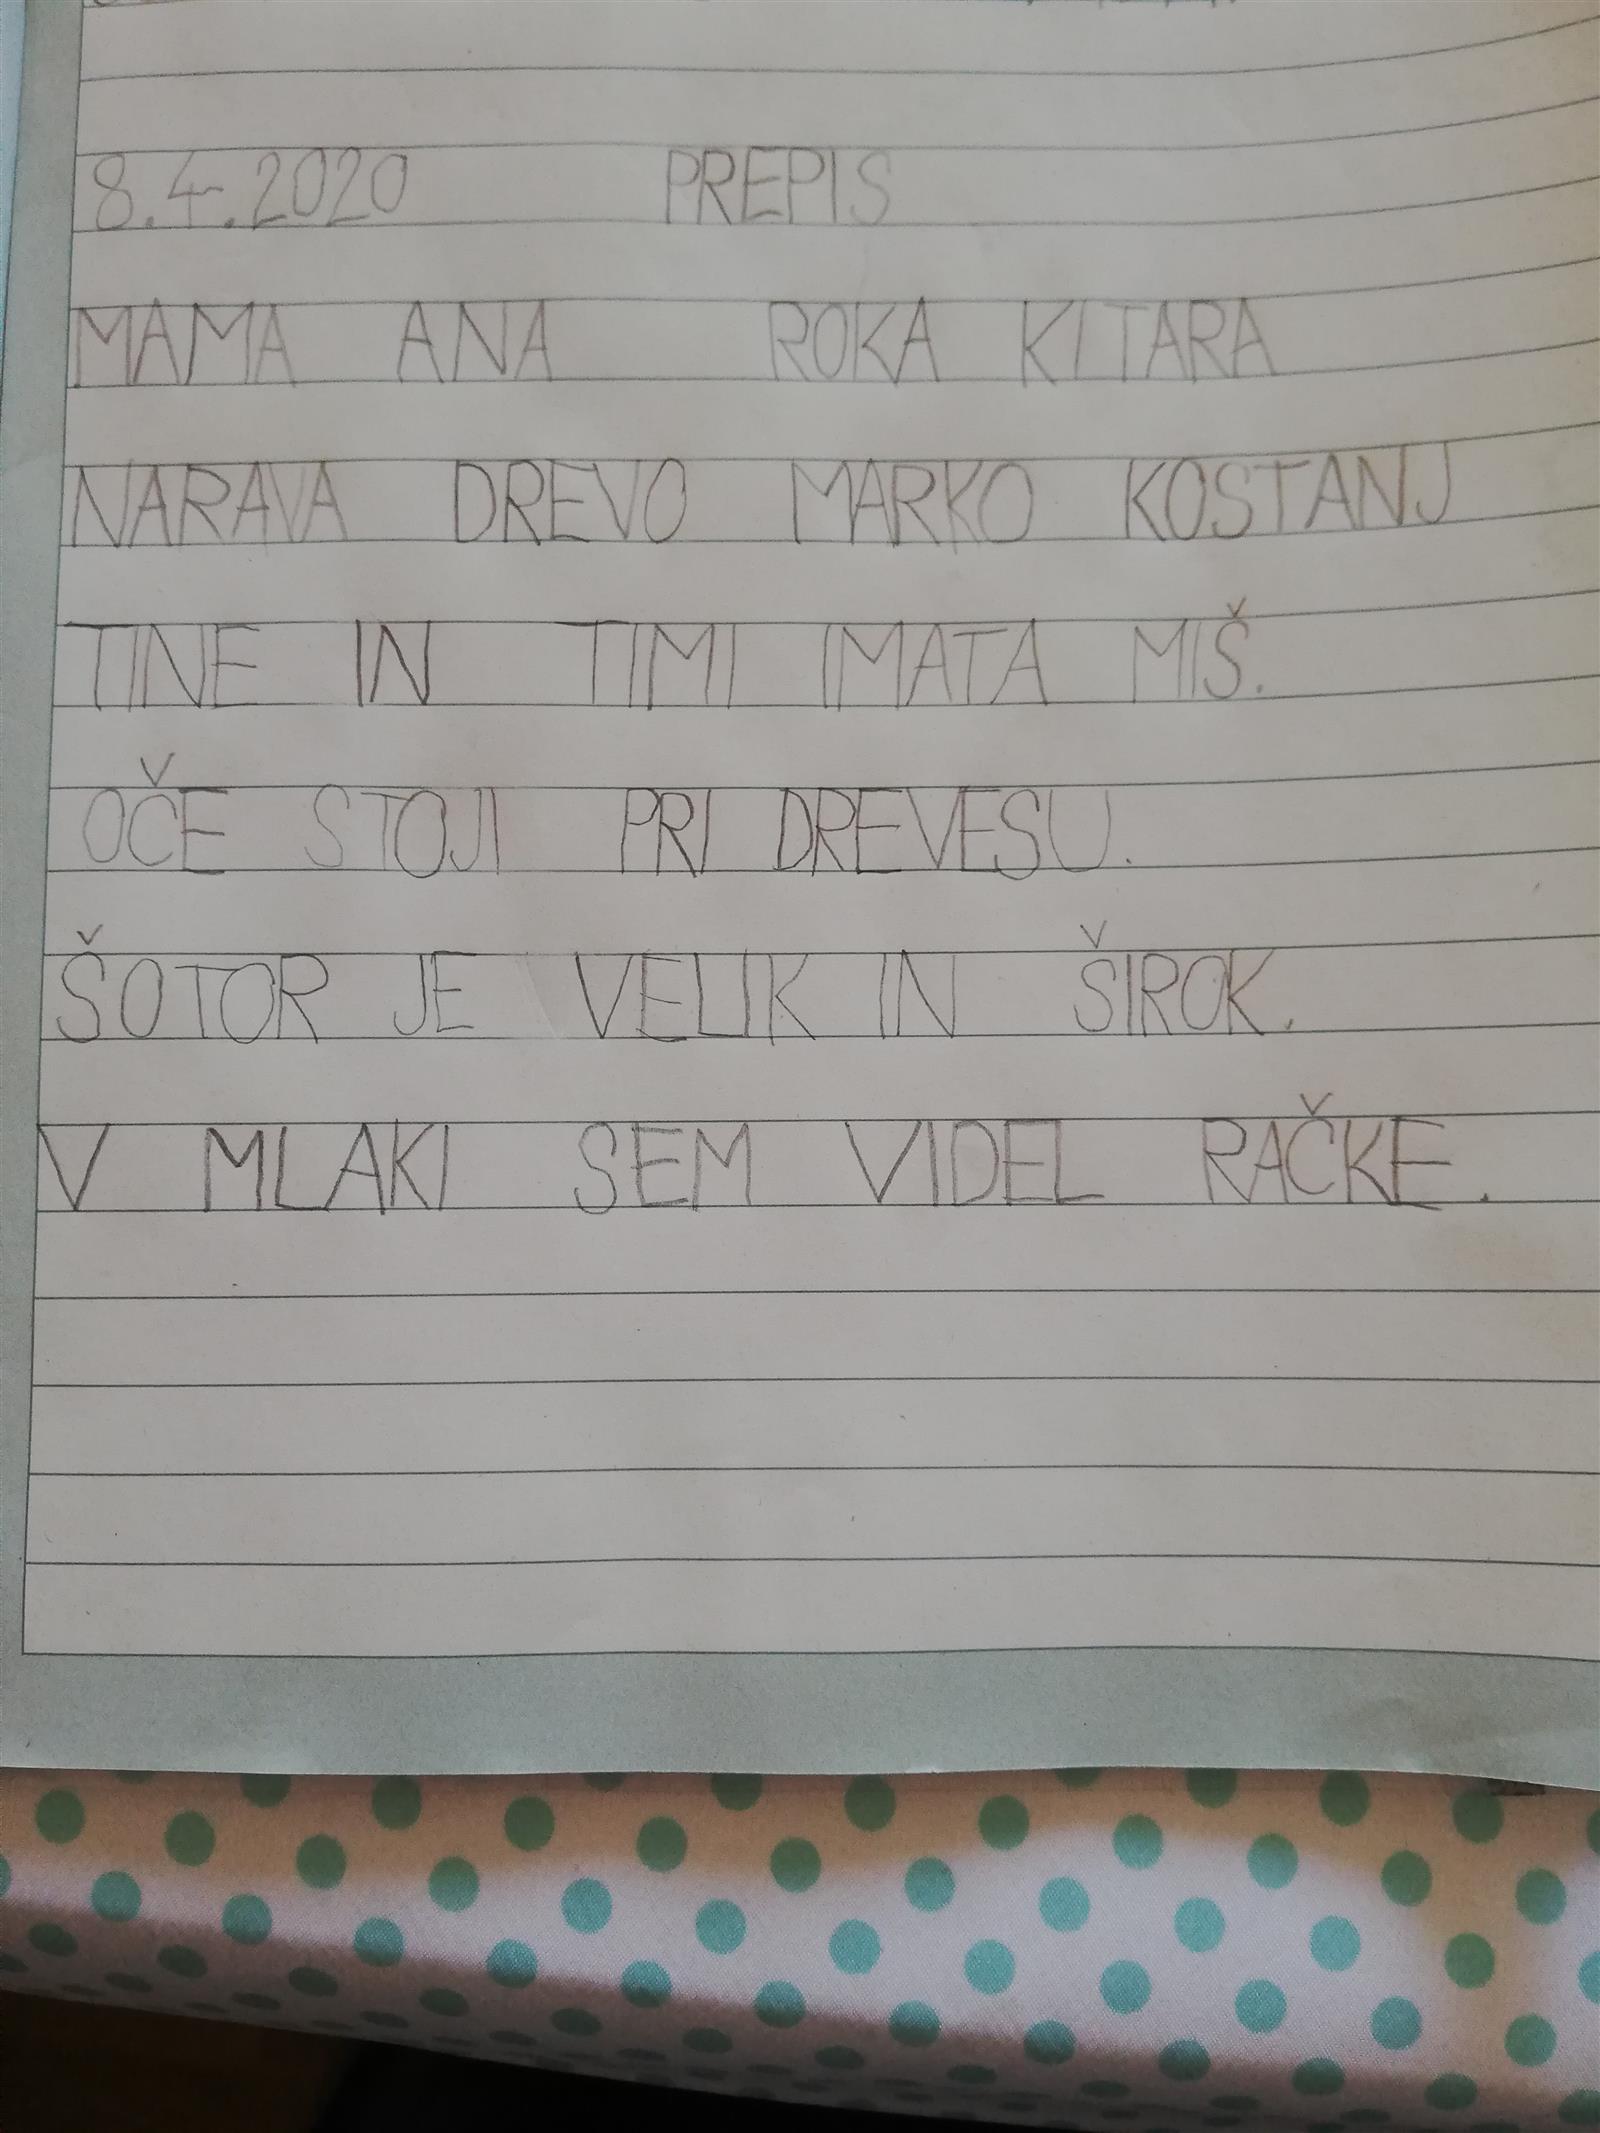 8.4.2020 PREPIS
MAMA ANA ROKA KITARA
NARAVA DREVO MARKO KOSTANJ
TINE IN TIMI IMATA MIŠ.
OČE STOJI PRI DREVESU.
ŠOTOR JE VELIK IN ŠIROK.
V MLAKI SEM VIDEL RAČKE.